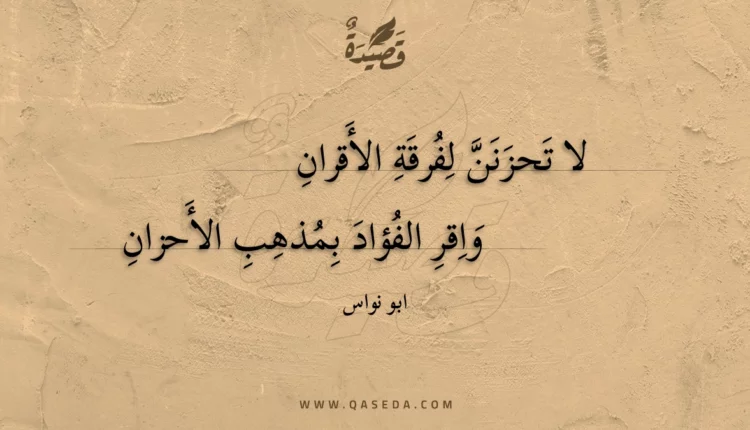 قَصِيْدَةٌ
لا تَحزَنَنَّ لِفُرقَةِ الأَقرانِ
وَاِقرِ الفُؤادَ بِمُذهِبِ الأَحزانِ
ابو نواس
WWW.QASEDA.COM